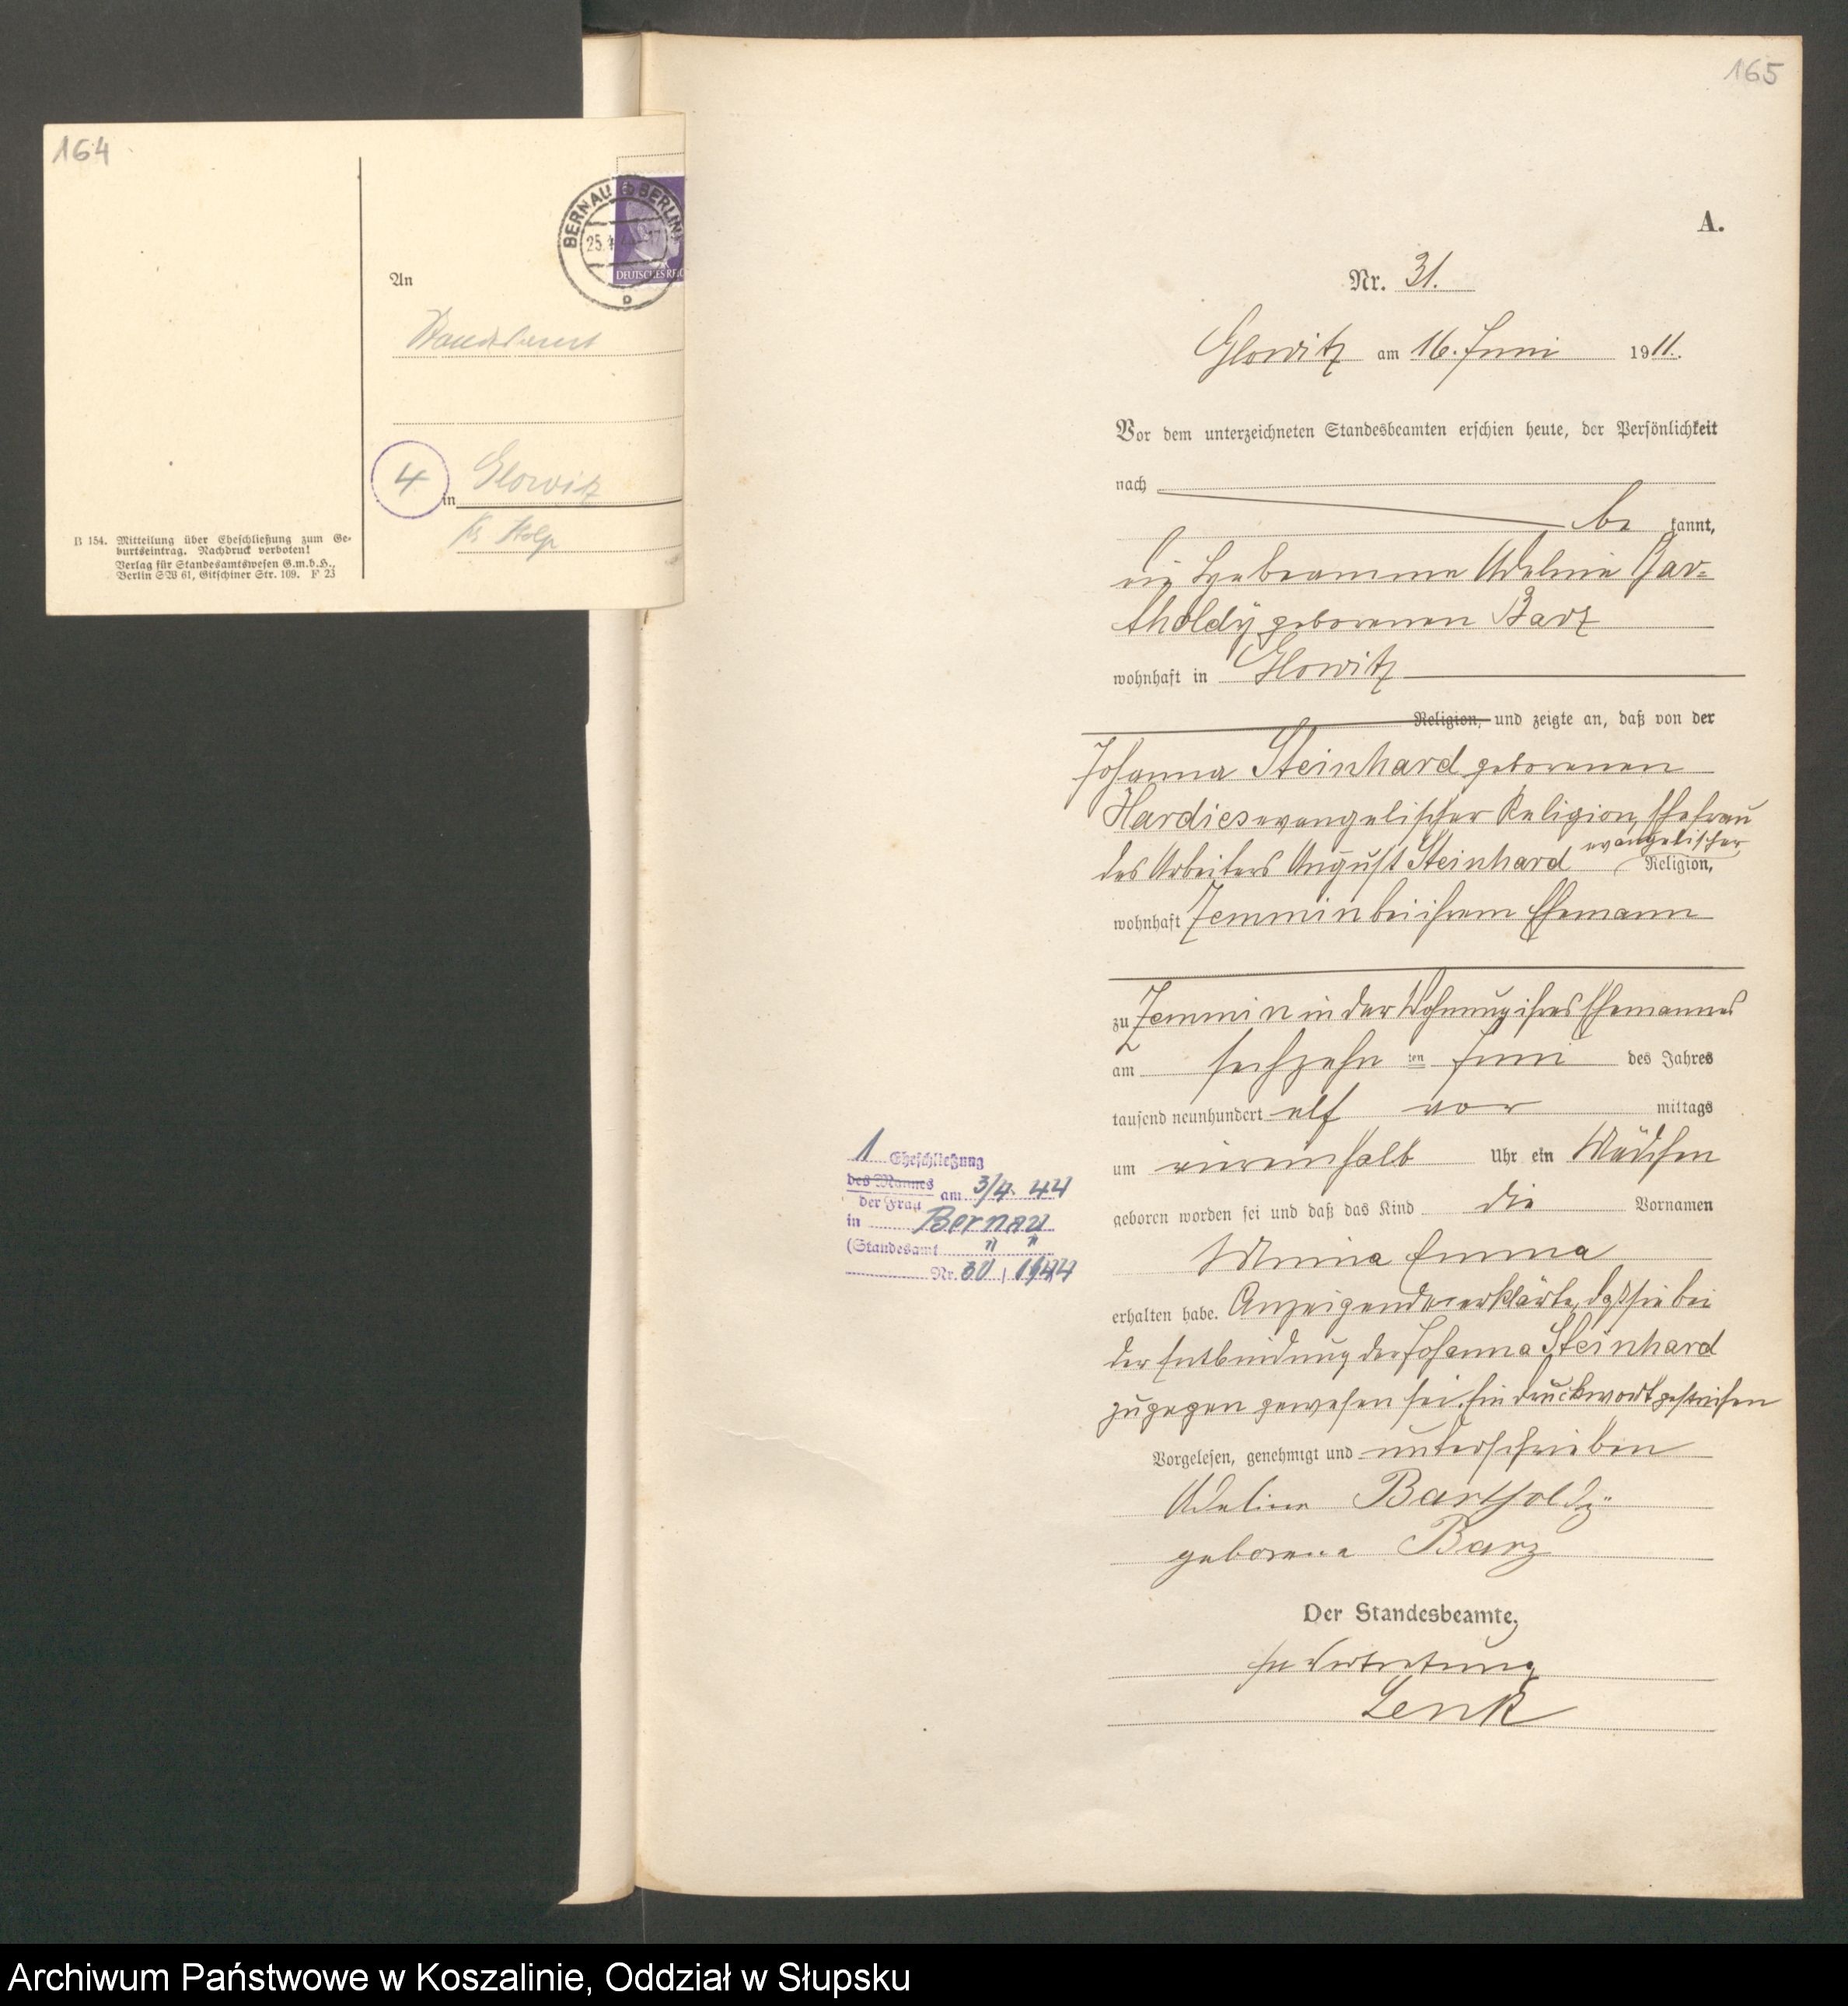 164
BERNAU b BERLIN
25.4.
DEUTSCHES REIC
b
An
Standesamt
4
in Glowitz
Kr Stolp
B 154. Mitteilung über Eheschließung zum Ge-
burtseintrag. Nachdruck verboten!
Verlag für Standesamtswesen G.m.b.H.,
Berlin SW 61, Gitschiner Str. 109. F 23
165
A.
Nr. 31.
Glowitz am 16. Juni 1911.
Vor dem unterzeichneten Standesbeamten erschien heute, der Persönlichkeit
nach
be kannt,
die Hebeamme Adeline Bar=
tholdÿ geborenen Barz
wohnhaft in Glowitz
Religion, und zeigte an, daß von der
Johanna Steinhard geborenen
Hardies evangelischer Religion, Ehefrau
des Arbeiters August Steinhard evangelischer Religion,
wohnhaft Zemmin bei ihrem Ehemann
zu Zemmin in der Wohnung ihres Ehemannes
am sechzehn ten Juni des Jahres
tausend neunhundert elf vor mittags
um viereinhalb Uhr ein Mädchen
geboren worden sei und daß das Kind die Vornamen
Minna Emma
erhalten habe. Anzeigende erklärte, daß sie bei
der Entbindung der Johanna Steinhard
zugegen gewesen sei. Ein Druckwort gestrichen
Vorgelesen, genehmigt und unterschrieben
Adeline Bartholdÿ
geborene Barz
Der Standesbeamte,
In Vertretung
Lenk
1 Eheschließung
des Mannes
der Frau am 3/4. 44
in Bernau
(Standesamt " "
Nr. 30 / 1944
Archiwum Państwowe w Koszalinie, Oddział w Słupsku